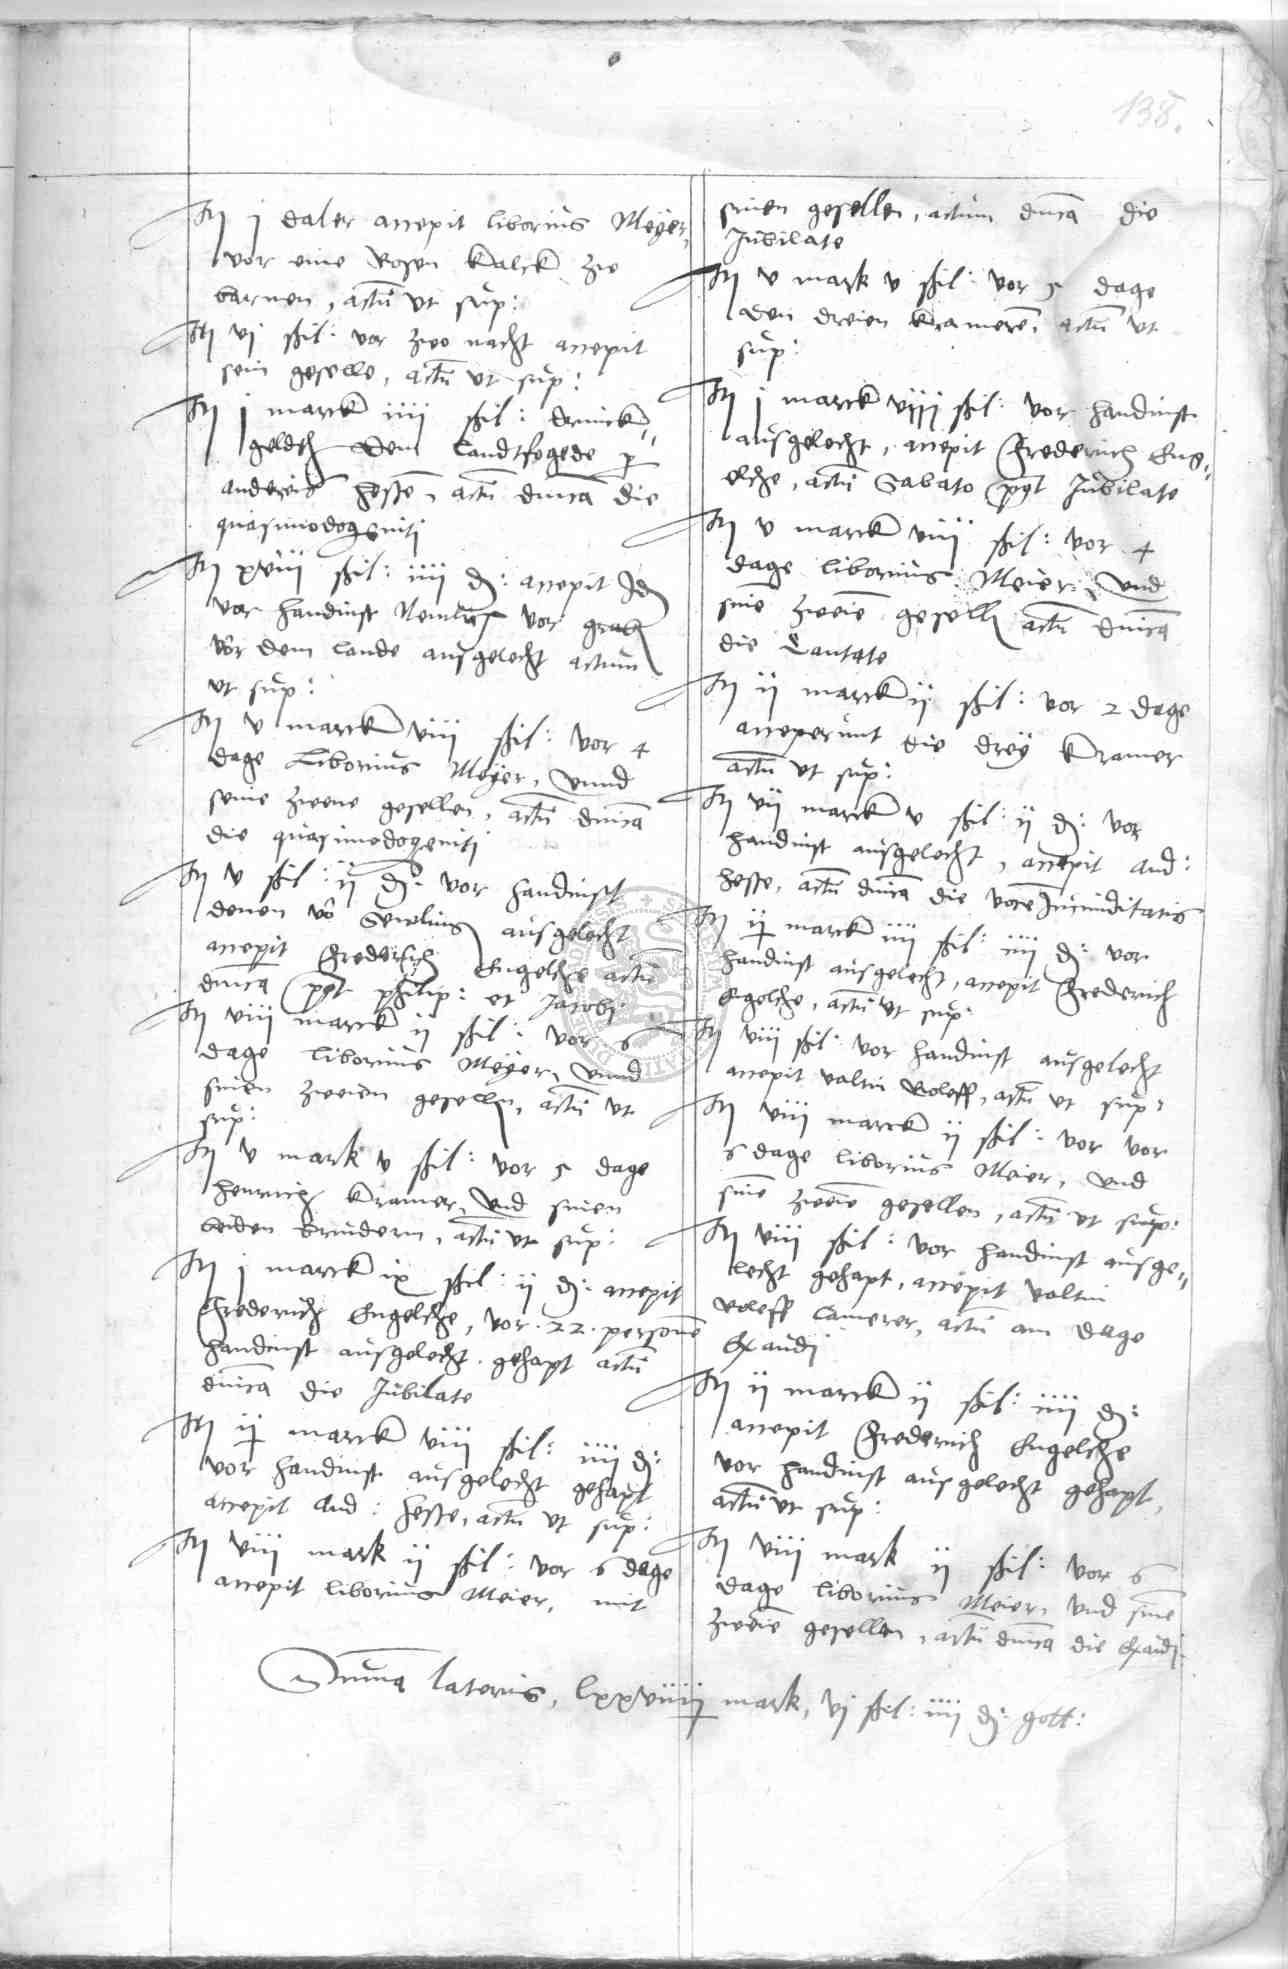 138.
Itm j daler accepit liborius Meyer,
vor eine Rosen kalck zue
barnen, actū ut sup:
Itm vj ßil: vor zwo nacht accepit
sein geselle, actū ut sup:
Itm j marck iiii ßil: drinck„
geldth dem Landtfogede
Andereis Hesse, actū dnica die
quasimodogeniti
Itm xviii ßil: iiii d: accepit Idem
vor handinst vor
vor dem lande ausgelecht actum
ut sup:
Itm v marck viii ßil: vor 4
dage Liborius Meyer, unnd
seine zwene gesellen, actū dnica
die quasimodogeniti
Itm v ßil: ii d: vor handinst
denen vō ausgelecht
accepit Frederich Engelche actū
dnica pꝰt philip: et Jacobi
Itm viii marck ii ßil: vor 6
dage liborius Meyer, unnd
sinen zweien gesellen, actū ut
sup:
Itm v mark v ßil: vor 5 dage
Henrich kramer, und sinen
beiden brudern, actū ut sup:
Itm j marck ix ßil: ii d: accepit
Frederich Engelche, vor 22. personē
handinst ausgelecht gehapt actū
dnica die Jubilate
Itm ii marck viii ßil: iiii d:
vor handinst ausgelecht gehapt
accepit And: Hesse, actū ut sup:
Itm viii mark ii ßil: vor 6 dage
accepit liborius Meier, mit
sinen gesellen, actum dnica die
Jubilate
Itm v mark v ßil: vor 5 dage
den dreien kramerē, actū ut
sup:
Itm j marck viii ßil: vor handinst
ausgelecht, accepit Frederich Eng„
elche, actū Sabato pꝰt Jubilate
Itm v marck viii ßil: vor 4
dage liborius Meier, und
sinē zweiē gesellen actū dnica
die Cantate
Itm ii marck ii ßil: vor 2 dage
acceperunt die drey kramer
actū ut sup:
Itm vii marck v ßil: ii d: vor
handinst ausgelecht, accepit And:
Hesse, actū dnica die vocē Jucunditatis
Itm ii marck iiii ßil: iiii d: vor
handinst ausgelecht, accepit Frederich
Egelche, actū ut sup:
Itm viii ßil: vor handinst ausgelecht
accepit valtin Roleff, actū ut sup:
Itm viii marck ii ßil: vor vor
6 dage liborius Meier, und
sinē zweiē gesellen, actū ut sup:
Itm viii ßil: vor handinst ausge„
lecht gehapt, accepit valtin
Roleff Camerer, actū am dage
Exaudi
Itm ii marck ii ßil: iiii d:
accepit Frederich Engelche
vor handinst ausgelecht gehapt,
actū ut sup:
Itm viii mark ii ßil: vor 6
dage liborius Meier, und sinē
zweiē gesellen, actū dnica die Exaudi.
Suma lateris, lxxviiii mark, vj ßil: iiii d: gott: